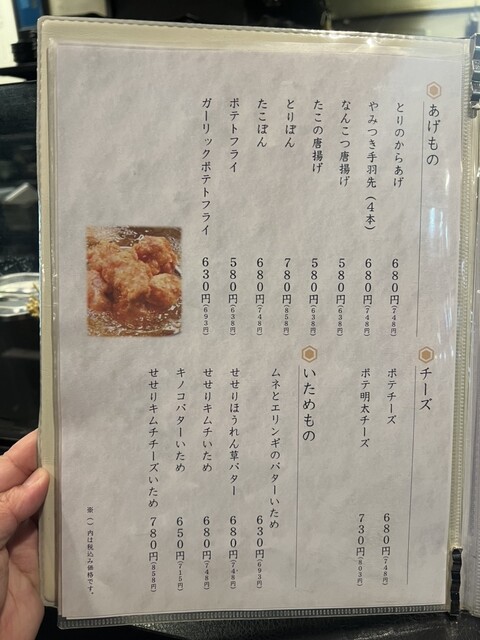 あげもの
とりのからあげ 680円(748円)
やみつき手羽先(4本) 680円(748円)
なんこつ唐揚げ 580円(638円)
たこの唐揚げ 580円(638円)
とりぽん 780円(858円)
たこぽん 680円(748円)
ポテトフライ 580円(638円)
ガーリックポテトフライ 630円(693円)
チーズ
ポテチーズ 680円(748円)
ポテ明太チーズ 730円(803円)
いためもの
ムネとエリンギのバターいため 630円(693円)
せせりほうれん草バター 680円(748円)
せせりキムチいため 680円(748円)
キノコバターいため 650円(715円)
せせりキムチチーズいため 780円(858円)
※()内は税込み価格です。